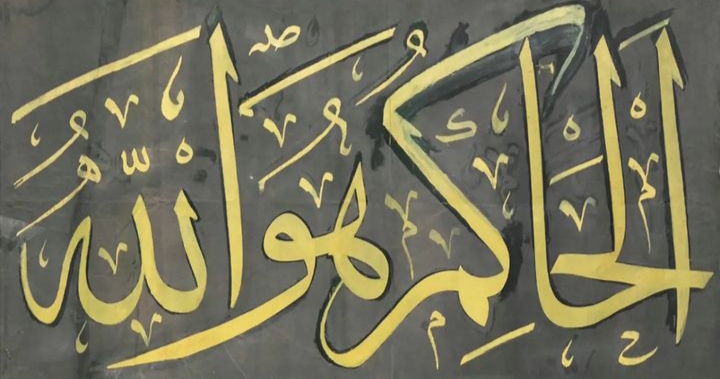 الحاكم هو الله